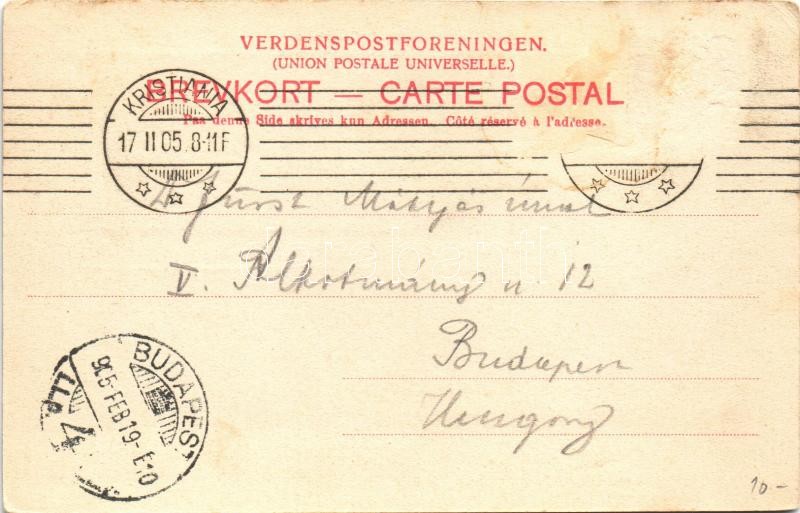 VERDENSPOSTFORENINGEN.
(UNION POSTALE UNIVERSELLE.)
BREVKORT — CARTE POSTAL
Paa denne Side skrives kun Adressen. Côté réservé à l'adresse.
KRISTIANIA
17 II 05. 8-11F
Fürst Mátyás úrnak
V. Alkotmány u 12
Budapest
Hungary
BUDAPEST
905 FEB 19-E10
10-